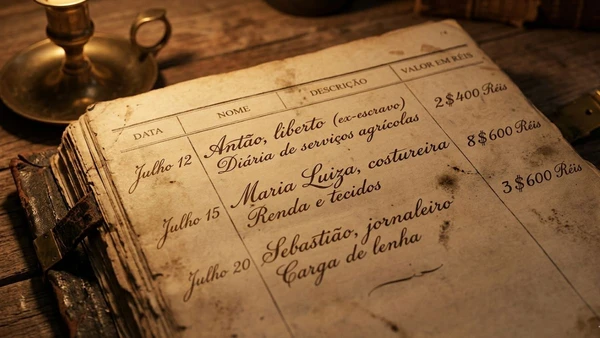 DATA NOME DESCRIÇÃO VALOR EM RÉIS
Julho 12 Antão, liberto (ex-escravo) 2$400 Réis
Diária de serviços agrícolas
Julho 15 Maria Luiza, costureira 8$600 Réis
Renda e tecidos
Julho 20 Sebastião, jornaleiro 3$600 Réis
Carga de lenha